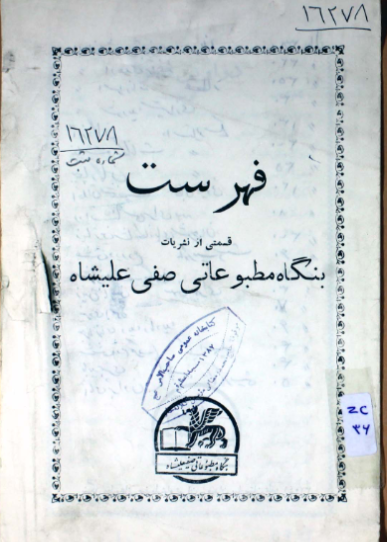 ۱۶۲۷۸
۱۶۲۷۸
شماره ثبت
فهرست
قسمتی از نشریات
بنگاه مطبوعاتی صفی علیشاه
کتابخانه عمومی
بنگاه مطبوعاتی صفیعلیشاه
ZC
۳۶